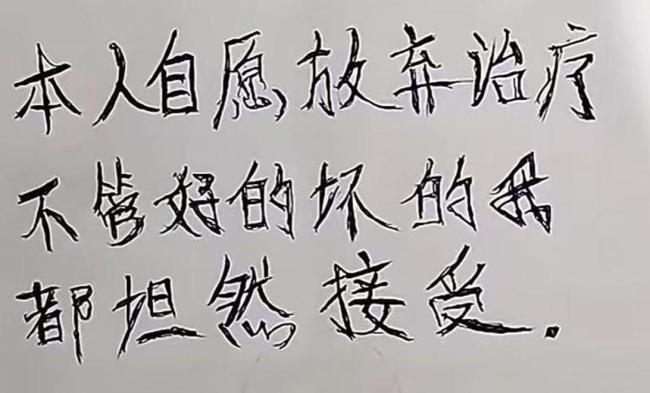 本人自愿,放弃治疗
不管好的坏的我
都坦然接受.